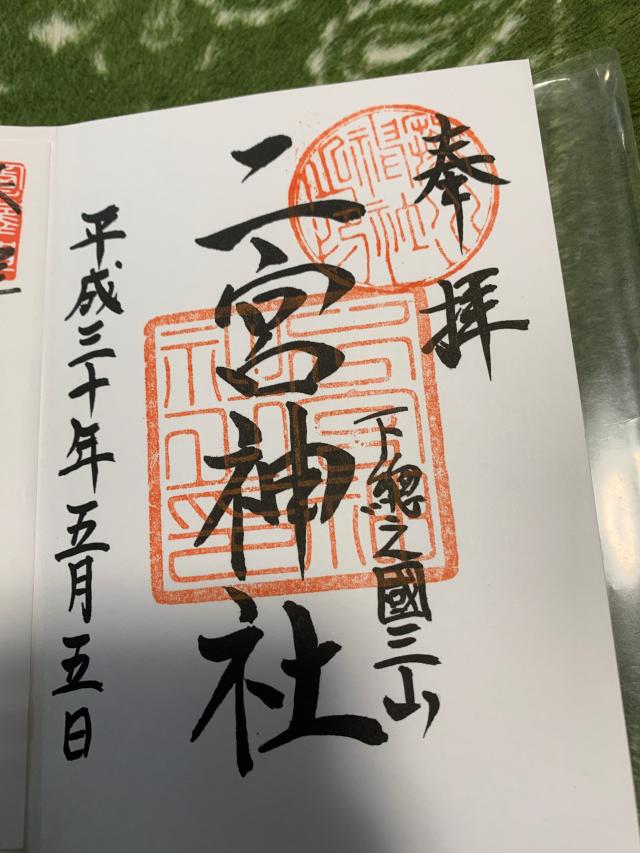 奉拝
下總之國三山
二宮神社
平成三十年五月五日